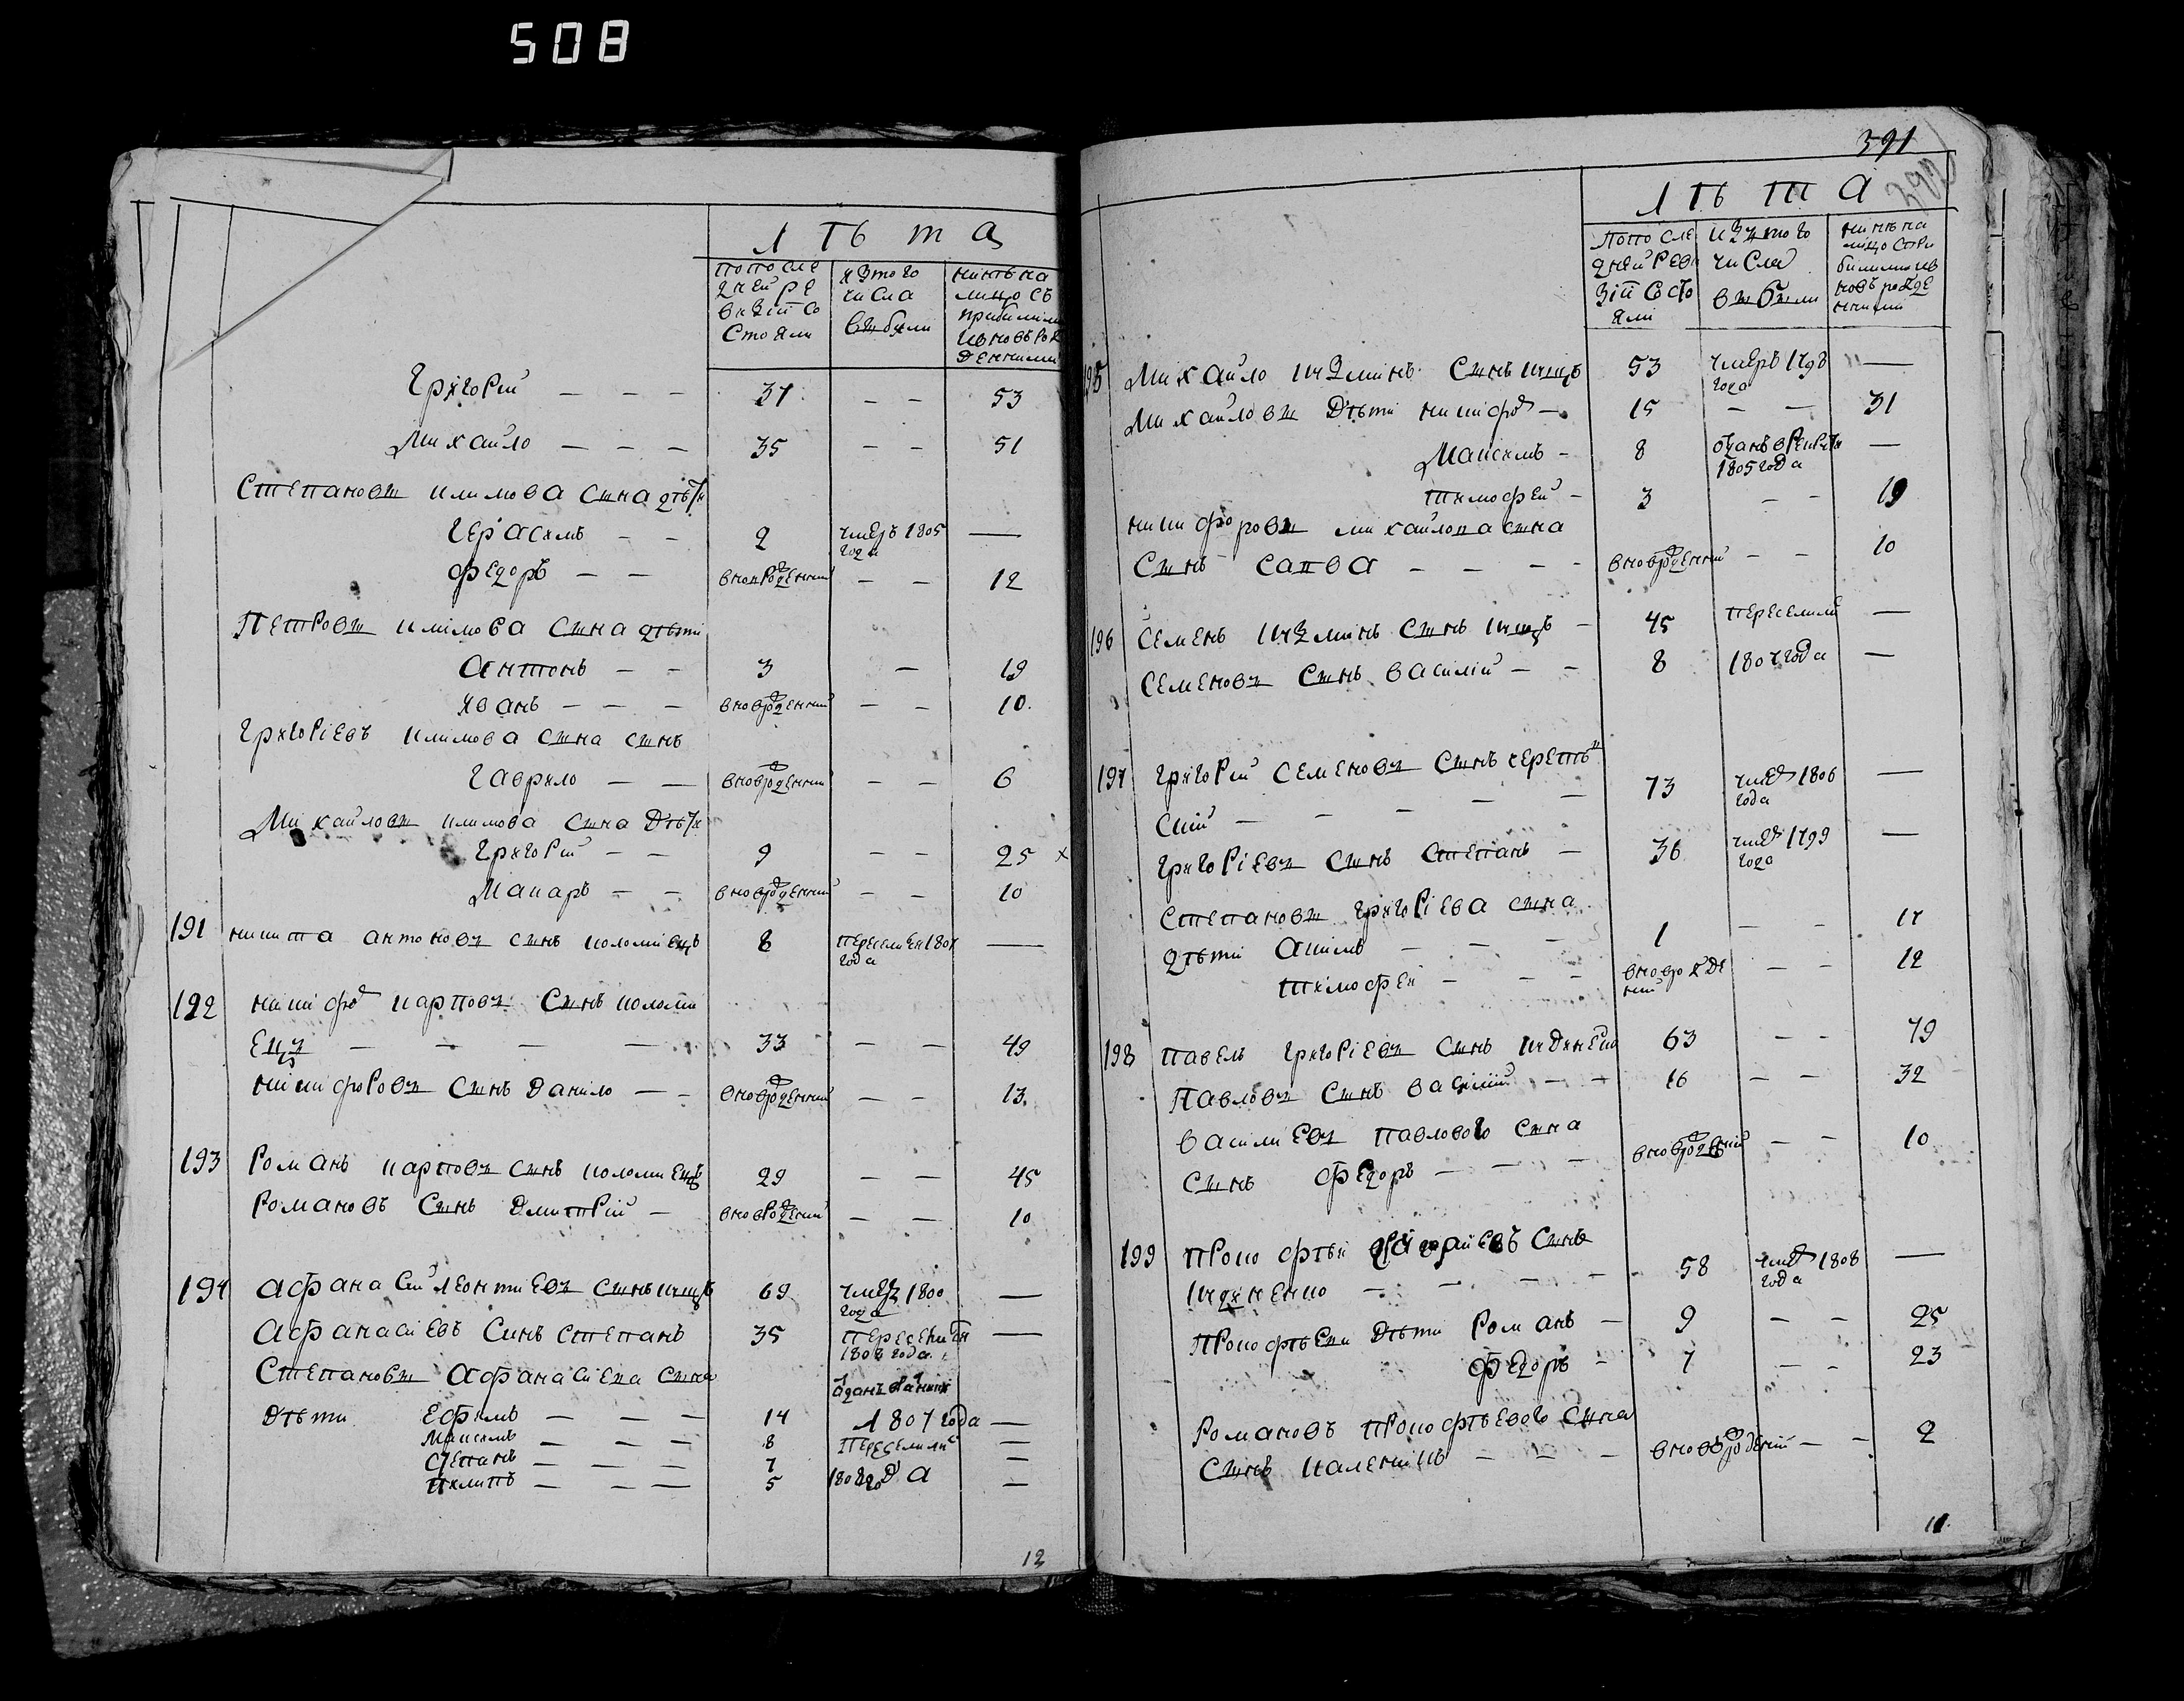 508
Лѣта
По после
дней ре
визіи со
стояли
изтого
числа
выбыли
нинѣ на
лицо съ
прибылими
и новъ рож
денними
Григорій — — — 37 — — 53
Михайло — — — 35 — — 51
Степановы Климова сына дѣти
Герасимъ — — 2 умеръ 1805 —
года
Федоръ — — вновьрожденний — — 12
Петровы Климова сына дѣти
Антонъ — — 3 — 19
Иванъ — — — вноврожденний — — 10.
Григоріевъ Климова сына сынъ
Гаврило — — вноврожденний — — 6
Михайловы Климова сына дѣти
Григорій — — 9 — — 25 х
Макаръ — — вноврожденний — — 10
191 Никита Антоновъ сынъ Коломіецъ 8 переселен 1807 —
года
192 Никифор Карповъ сынъ Коломи
ецъ — — — — 33 — — 49
Никифоровъ сынъ Данило — — вноврожденний — — 13.
193 Романъ Карповъ сынъ Коломіецъ 29 — — 45
Романовъ сынъ Дмитрій — вноврожденний — — 10
194 Афанасий Леонтиевъ сынъ 69 умеръ 1800 —
года
Афанасіевъ синъ Степанъ 35 —
1808 года
Степановы Афанасиева сына
дѣти Ефимъ — — — 14 1807 года —
Максимъ — — — 8 переселили —
Степанъ — — — 7 —
Пилипъ — — — 5 года —
12
391
392
Лѣта
По после
дней реви
зіи состо
яли
изтого
числа
выбыли
нинѣ на
лицо с при
билими и в
новь рожде
нними
195 Михайло Кузминъ сынъ 53 умеръ 1798 —
года
Михайловы дѣти Никифор — 15 — — 31
Максимъ — 8 отданъ в рекруты —
1805 года
Тимофей — 3 — — 19
Никифоровы Михайлова сына
сынъ Савва — — — — вноврожденний — — 10
196 Семенъ Кузминъ сынъ — 45 переселили —
Семеновъ сынъ Василій — — 8 1807 года —
197 Григорій Семеновъ сынъ
ский — — — — — 73 умер 1806 —
года
Григоріевъ сынъ Степанъ — 36 умер 1799 —
года
Степановы Григоріева сына
дѣти Акимъ — — — 1 — — 17
Тимофей — — — вноврожде — — 12
ний
198 Павелъ Григоріевъ сынъ 63 — — 79
Павловъ сынъ Василій — — 16 — — 32
Василиевъ Павлового сына
сынъ Федоръ — — — вноврожденний — — 10
199 Прокофѣй сынъ
— — — — 58 умер 1808 —
года
Прокофѣеви дѣти Романъ — 9 — — 25
Федоръ — 7 — — 23
Романовъ Прокофѣевого сына
сынъ — — — вноврожденний — — 2
11.